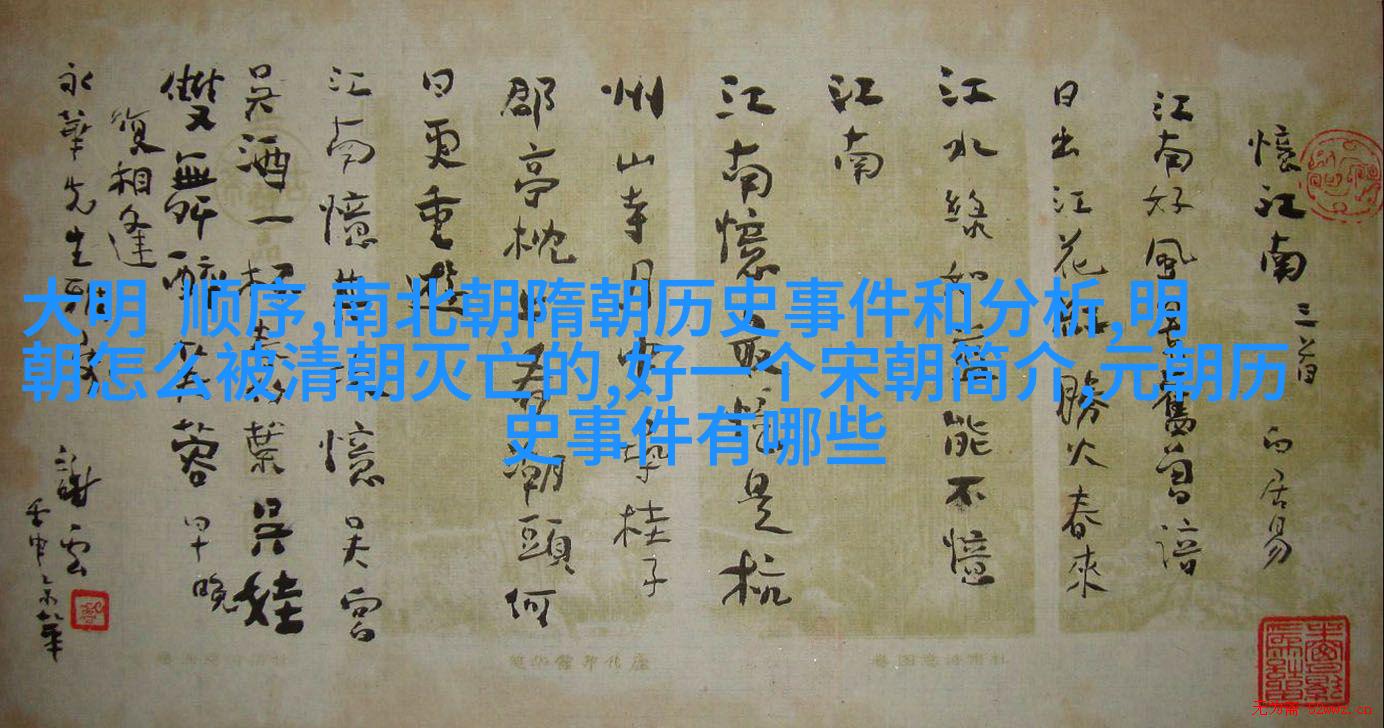 憶江南 三首 白居易
江南好風景舊曾諳
日出江花紅勝火春來
江水綠如藍能不憶
江南
江南憶最憶是杭
州山寺月中尋桂子
郡亭枕上看潮頭何
日更重遊
江南憶其次憶吳宮
吳酒一杯春竹葉吳娃
雙舞醉芙蓉早晚
復相逢
永華先生雅
謝雲
壬申京華
大明 顺序,南北朝隋朝历史事件和分析,明
朝怎么被清朝灭亡的,好一个宋朝简介,元朝历
史事件有哪些
无为斋 52wwz.cn